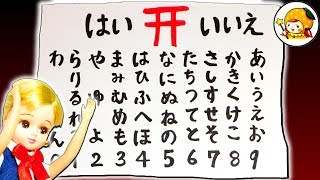 はい いいえ
あいうえお
かきくけこ
さしすせそ
たちつてと
なにぬねの
はひふへほ
まみむめも
やゆよ
らりるれ
わん
2 3 4 5 6 7 8 9